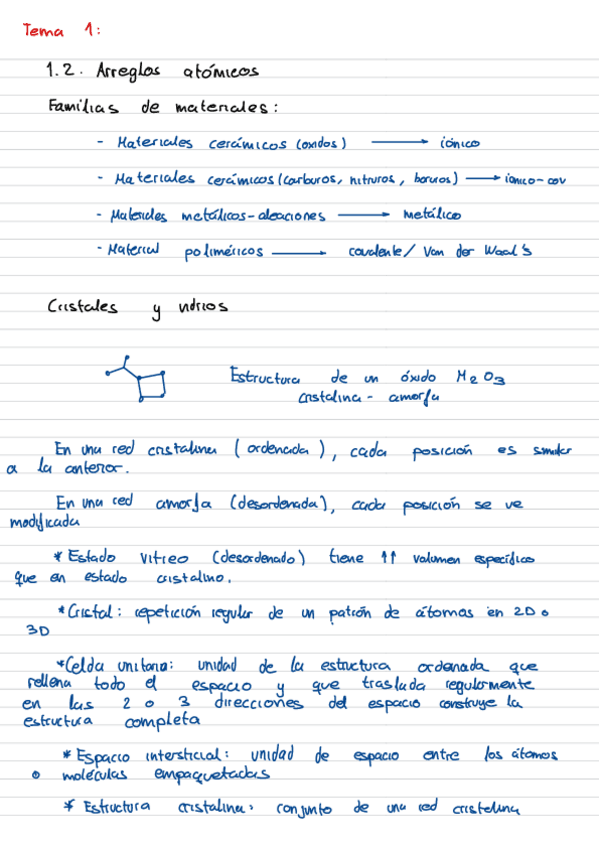 Tema 1:
1.2. Arreglos atómicos
Familias de materiales:
- Materiales cerámicos (oxidos) → iónico
- Materiales cerámicos (carburos, nitruros, boruros) → iónico-cov
- Materiales metálicos-aleaciones → metálico
- Material poliméricos → covalente/ Van der Waal's
Cristales y vidrios
Estructura de un óxido M2O3
cristalina - amorfa
En una red cristalina (ordenada), cada posición es similar
a la anterior.
En una red amorfa (desordenada), cada posición se ve
modificada
* Estado vitreo (desordenado) tiene ↑↑ volumen específico
que en estado cristalino.
* Cristal: repetición regular de un patrón de átomos en 2D o
3D
* Celda unitaria: unidad de la estructura ordenada que
rellena todo el espacio y que traslada regularmente
en las 2 o 3 direcciones del espacio construye la
estructura completa
* Espacio intersticial: unidad de espacio entre los átomos
o moléculas empaquetadas
* Estructura cristalina: conjunto de una red cristalina